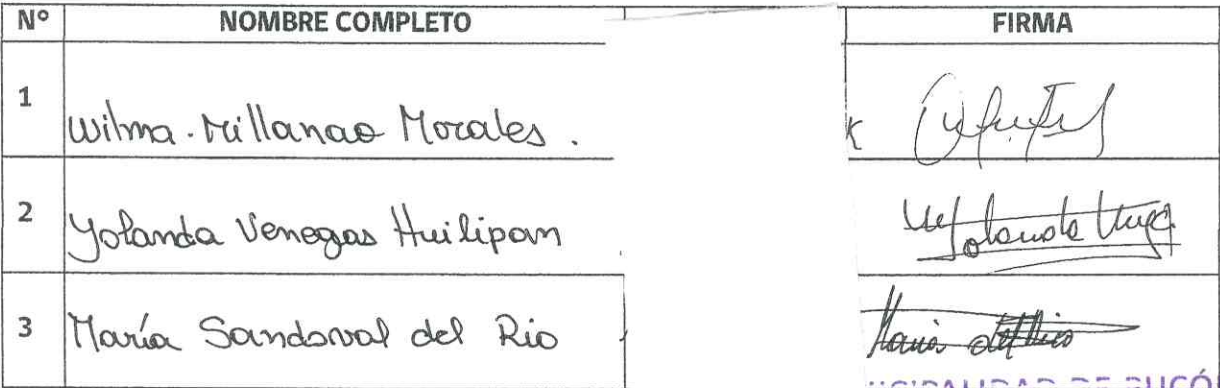 Nº NOMBRE COMPLETO FIRMA
1 Wilma. Millanao Morales.
2 Yolanda Venegas Huilipan
3 María Sandoval del Rio
DE PUCÓ